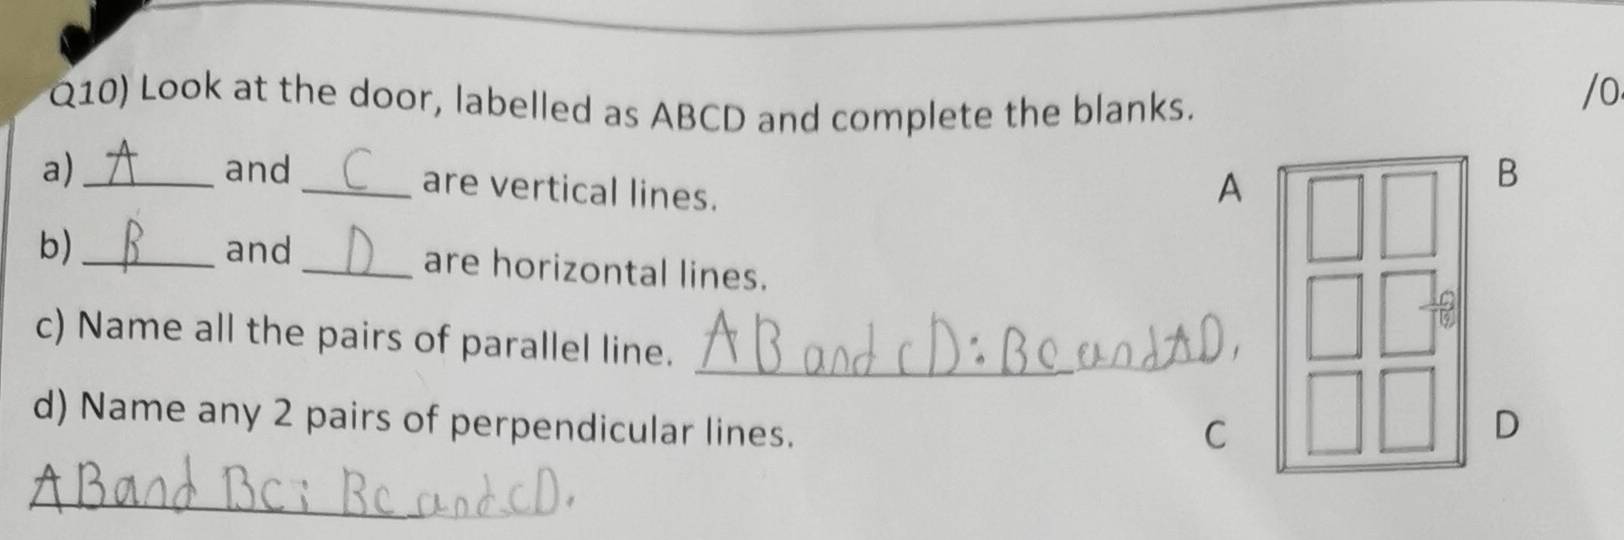 Q10) Look at the door, labelled as ABCD and complete the blanks.
/0
a) A and C are vertical lines.
b) B and D are horizontal lines.
c) Name all the pairs of parallel line. AB and CD; BC and AD,
d) Name any 2 pairs of perpendicular lines.
AB and BC; BC and CD.
A
B
C
D